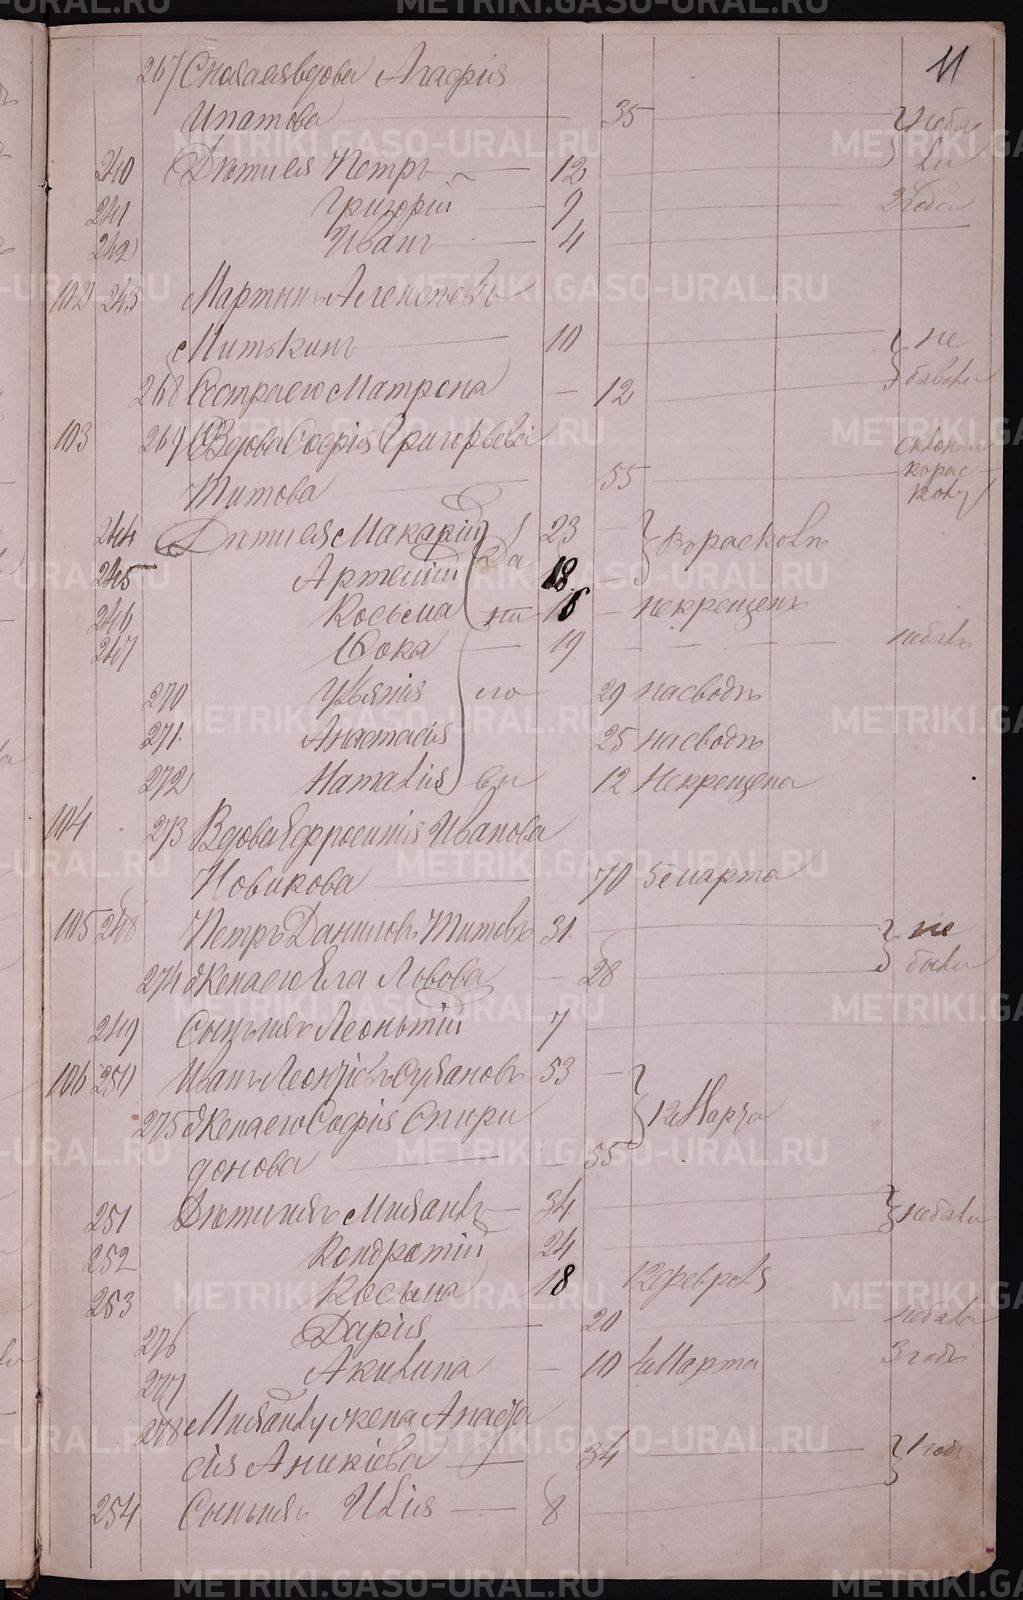 11
267 Сноха ея вдова Агафія
Ипатова 35 } неба
240 Дѣти ея Петръ 12 } ли
241 Григорій 9 2 года
242 Иванъ 4
102 243 Мартинъ Алексѣевъ
Митькинъ 10 } не
268 Сестра его Матрона 12 } бывали
103 269 Вдова Софія Григорьева
Титова 55
244 Дѣти ея Макарій 23 } В расколѣ
245 Артемій 18
246 Косьма 16 некрещенъ
247 Фока 19 небылъ
270 Ульянія 29 насводъ
271 Анастасія 25 насводъ
272 Наталія 12 Некрещена
104 273 Вдова Ефросинія Иванова
Новикова 70 5 марта
105 248 Петръ Даниловъ Титовъ 31 } не
274 Жена его Елга Львова 28 } были
249 Сынъ ихъ Леонтій 7
106 250 Иванъ Леонтіевъ 53
275 Жена его Софія Спири } 12 Марта
донова 55
251 Дѣти ихъ Михаилъ 34 } небыли
252 Кондратій 24
253 Косьма 18 12 февраля
276 Дарія 20 небыла
277 Акилина 10 4 Марта 3 годъ
278 Михаилу жена Анаста
сія Аникіева 34 } 1 годъ
254 Сынъ ихъ Илія 8
METRIKI.GASO-URAL.RU